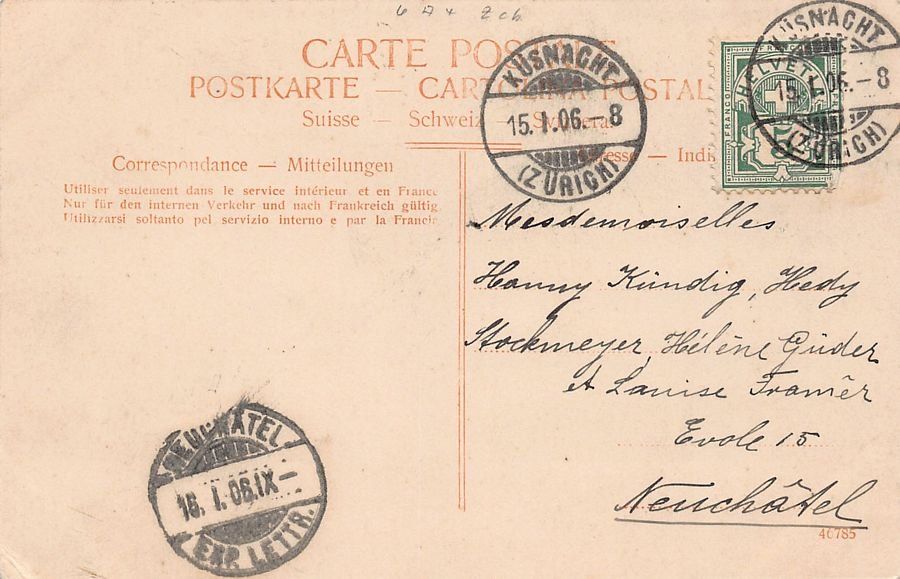 CARTE POSTALE
POSTKARTE — CARTOLINA POSTALE
Suisse — Schweiz — Svizzera
KÜSNACHT
15. I. 06. – 8
(ZÜRICH)
KÜSNACHT
15. I. 06. – 8
(ZÜRICH)
HELVETIA
FRANCO
Correspondance — Mitteilungen
Adresse — Indi
Utiliser seulement dans le service intérieur et en France
Nur für den internen Verkehr und nach Frankreich gültig.
Utilizzarsi soltanto pel servizio interno e par la Francia
Mesdemoiselles
Hanny Kündig, Hedy
Stockmeyer, Hélène Güder
et Louise Framèr
Evole 15
Neuchâtel
NEUCHÂTEL
16. I. 06. IX –
EXP. LETTR.
40785